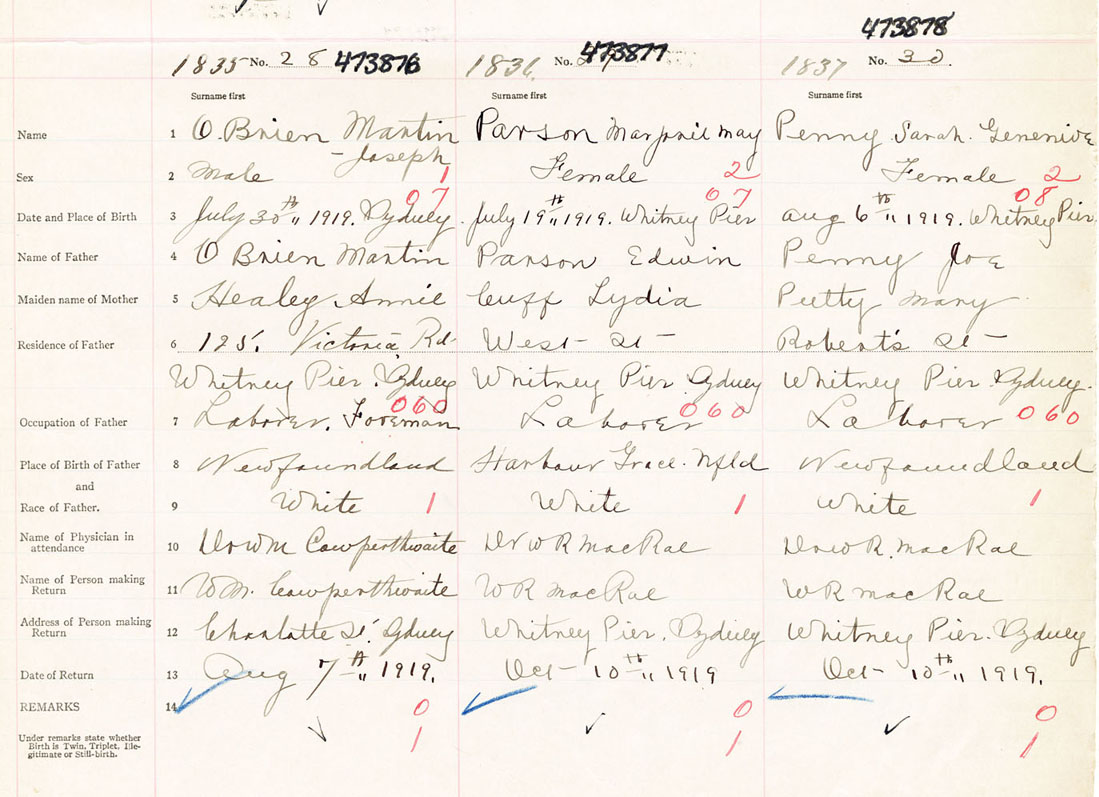 473878
1835 No. 28 473876 1836 No. 473877 1837 No. 30.
Surname first Surname first Surname first
Name 1 O.Brien Martin Parson may Penny Sarah. Genenive
-Joseph
Sex 2 Male 1 Female 2 Female 2
07 07 08
Date and Place of Birth 3 July 30th 1919. Sydney. July 19th 1919. Whitney Pier aug 6th 1919. Whitney Pier.
Name of Father 4 O Brien Martin Parson Edwin Penny Joe
Maiden name of Mother 5 Healey, Annie Cuff Lydia Petty Mary
Residence of Father 6 125. Victoria Rd- West- St- Robert's St-
Whitney Pier. Sydney Whitney Pier Sydney Whitney Pier Sydney.
060 060 060
Occupation of Father 7 Laborer. Foreman Laborer Laborer
Place of Birth of Father 8 Newfoundland Harbour Grace. Nfld Newfoundland
and
Race of Father. 9 White 1 White 1 White 1
Name of Physician in
attendance 10 Dr Wm Cowperthwaite Dr W R MacRae Dr W R. MacRae
Name of Person making
Return 11 Wm. Cowperthwaite W R MacRae W R MacRae
Address of Person making
Return 12 Charlotte St. Sydney Whitney Pier. Sydney Whitney Pier. Sydney
Date of Return 13 Aug 7th 1919. Oct- 10th 1919 Oct- 10th 1919.
REMARKS 14 0 0 0
Under remarks state whether
Birth is Twin, Triplet, Ille-
gitimate or Still-birth. 1 1 1